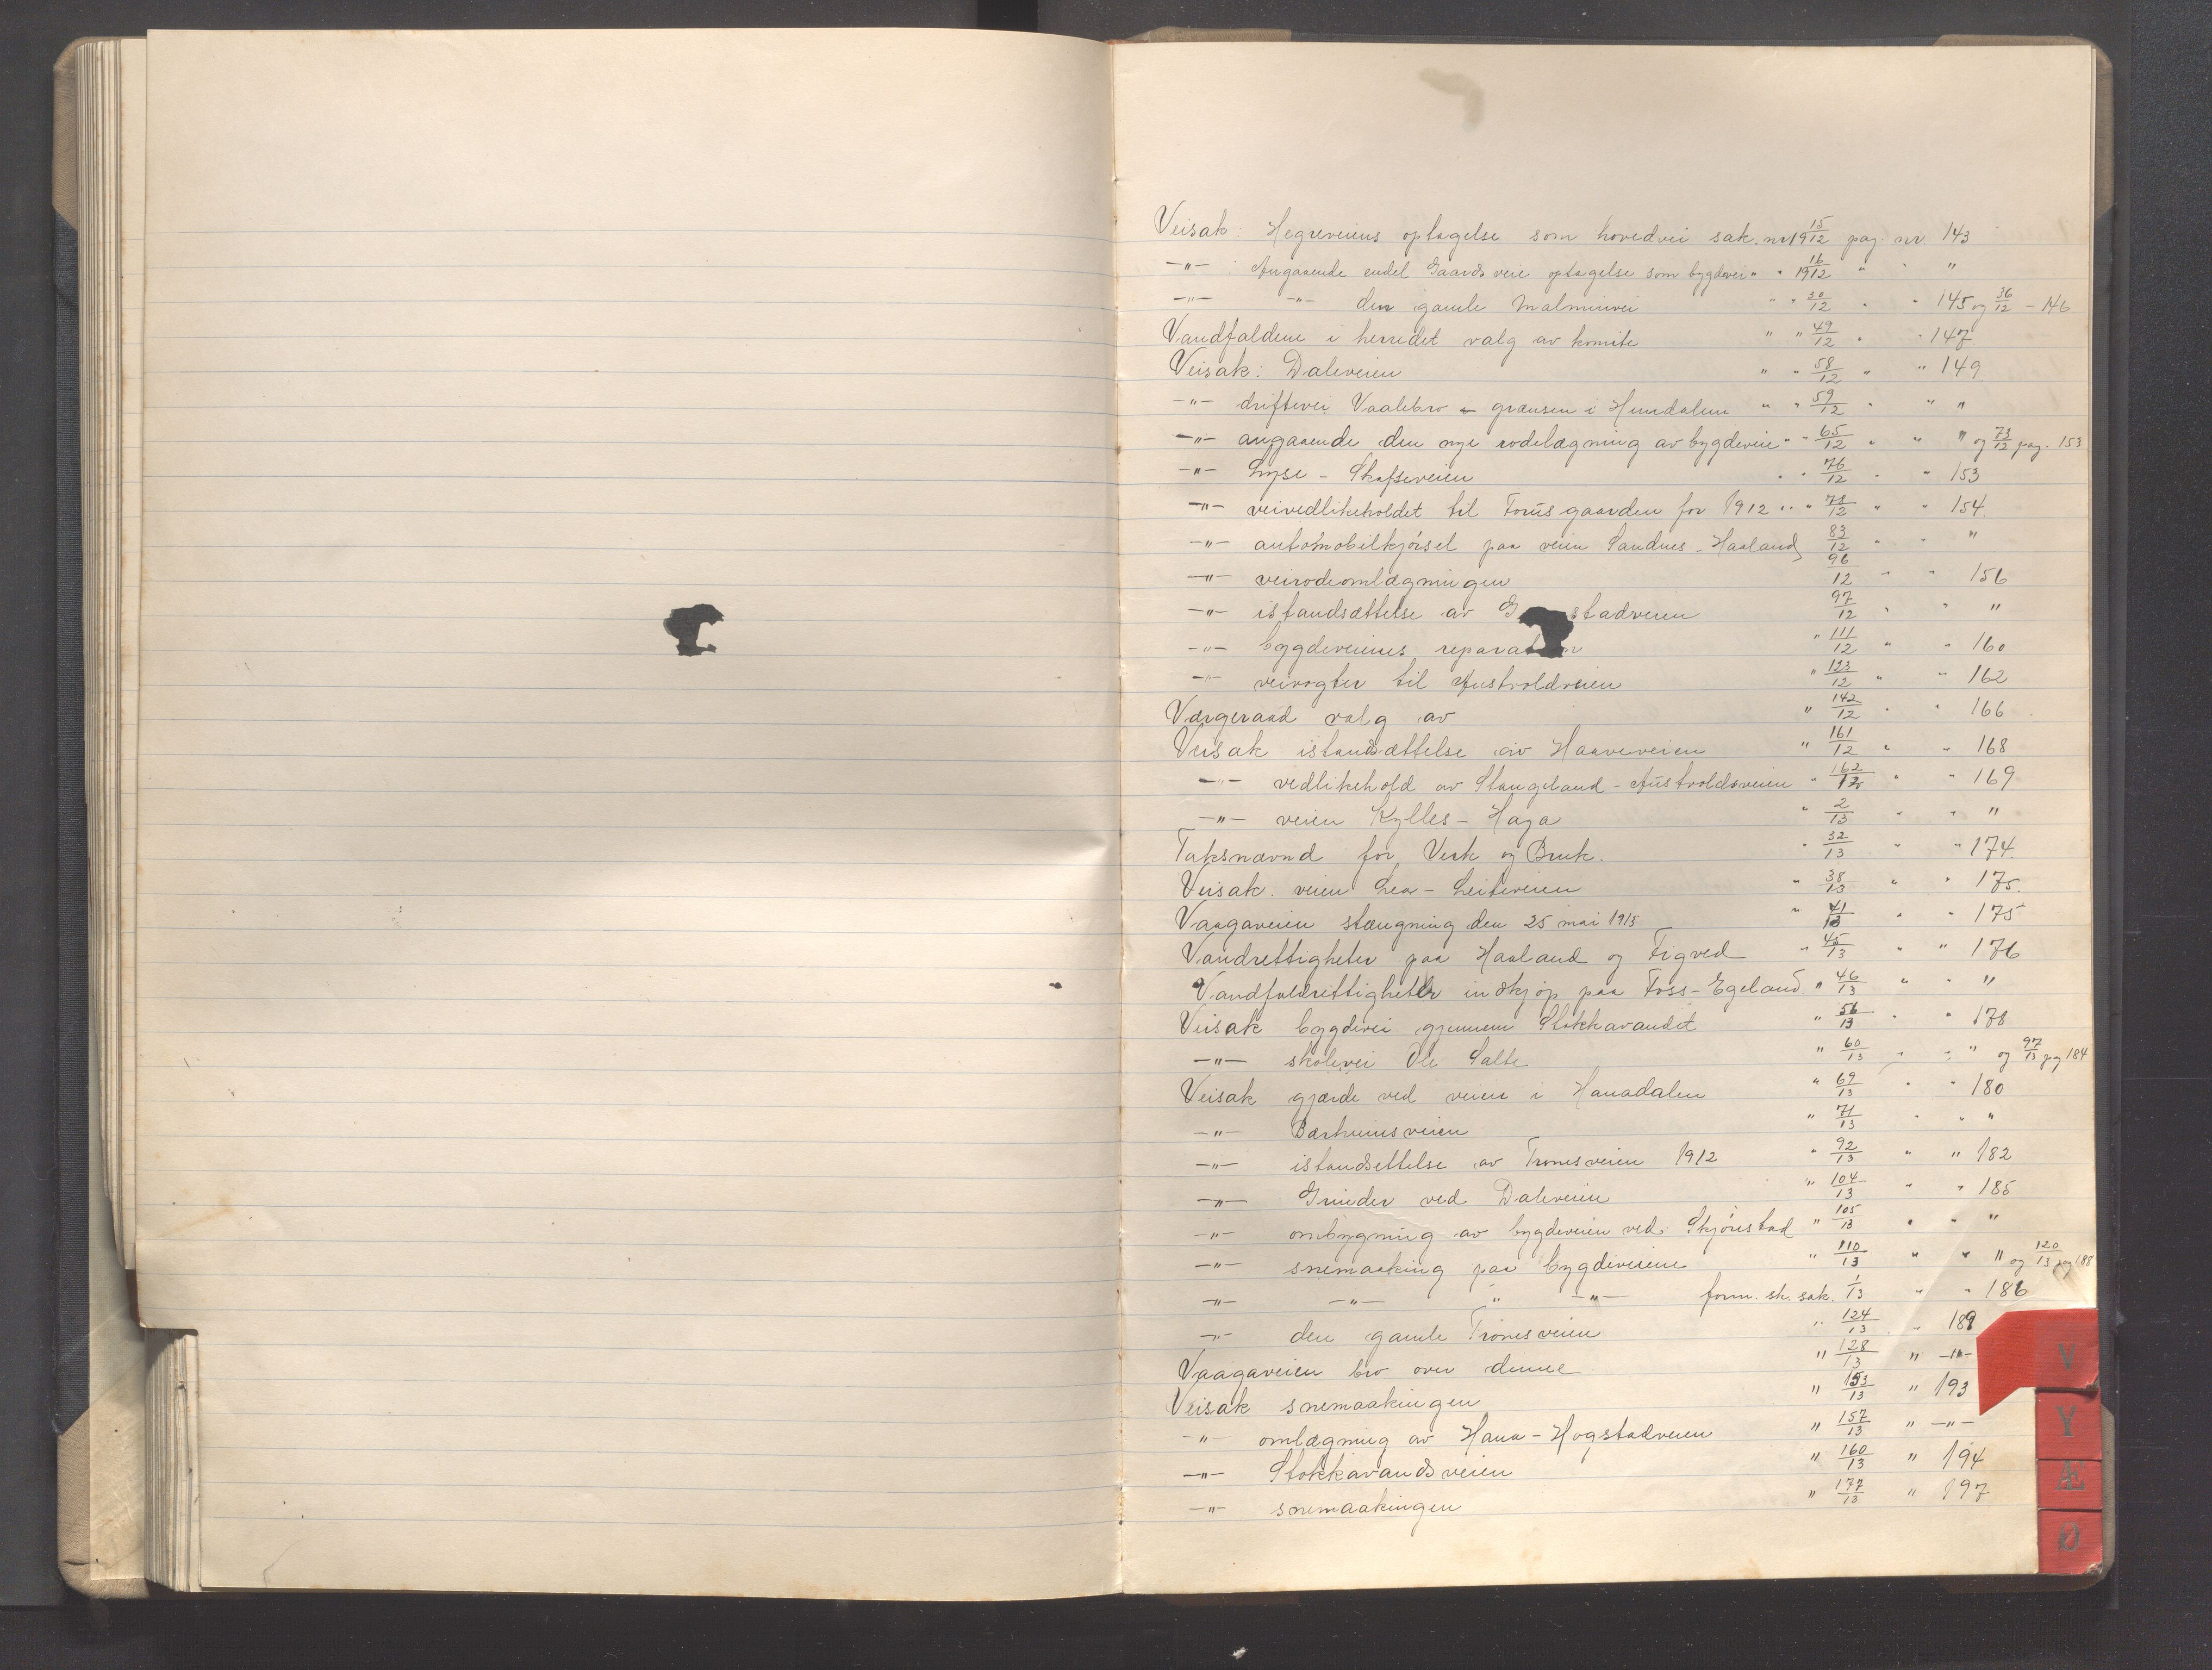 Veisak: Hegreveiens optagelse som hovedvei sak. nr 19 15/12 pag. nr 143
-"- : Angaaende endel Gaards veie optagelse som bygdevei " " 19 16/12 " " "
-"- -"- den gamle Malmeivei " " 30/12 " " 145 og 36/12 - 146
Vandfaldene i herredet valg av komite " " 49/12 " " 147
Veisak: Daleveien " " 58/12 " " 149
-"- driftevei Vaalebro - grænsen i Hundalen " " 59/12 " " "
-"- angaaende den nye rodelægning av bygdeveie " " 65/12 " " " og 73/12 pag. 153
-"- Lyse - Skafseveien " " 76/12 " " 153
-"- veivedlikeholdet til Forusgaarden for 1912 " " 78/12 " " 154
-"- automobilkjørsel paa veien Sandnes - Haaland 83/12 " " "
-"- veirodeomlægningen 96/12 " " 156
-"- istandsættelse av G stadveien 97/12 " " "
-"- bygdeveienes reparation " 111/12 " " 160
-"- veivogter til Austvoldveien " 123/12 " " 162
Værgeraad valg av " 142/12 " " 166
Veisak istandsættelse av Haaveveien " 161/12 " " 168
-"- vedlikehold av Stangeland - Austvoldsveien " 162/12 " " 169
-"- veien Kylles - Haga " 2/13 " " "
Taksnævnd for Verk og Bruk. " 32/13 " " 174
Veisak. veien Lea - Leiteveien " 38/13 " " 175.
Vaagaveien stængning den 25 mai 1913 " 41/13 " " 175
Vandrettigheter paa Haaland og Figved " 45/13 " " 176
Vandfaldrettigheter indkjøp paa Foss-Egeland " 46/13 " " "
Veisak bygdevei gjennem Stokkavandet " 56/13 " " 178
-"- skolevei Ole Salte " 60/13 " " " og 97/13 pag 184
Veisak gjærde ved veien i Hanadalen " 69/13 " " 180
-"- Bærheimsveien " 71/13 " " "
-"- istandsettelse av Tronesveien 1912 " 92/13 " " 182
-"- Grinder ved Daleveien " 104/13 " " 185
-"- ombygning av bygdeveien ved Skjørestad " 105/13 " " "
-"- snemaaking paa bygdeveiene " 110/13 " " " og 120/13 pag 188
-"- -"- " -"- form. sk. sak. 1/13 " " 186
-"- den gamle Tronesveien " 124/13 " 189
Vaagaveien bro over denne " 128/13 " -"-
Veisak snemaakingen " 153/13 " 193
-"- omlægning av Hana - Hogstadveien " 157/13 " -"-
-"- Stokkavandsveien " 160/13 " 194
-"- snemaakingen " 177/13 " 197
V
Y
Æ
Ø